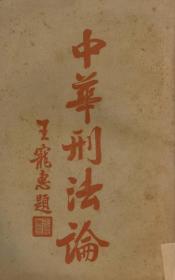 中華刑法論
王寵惠題